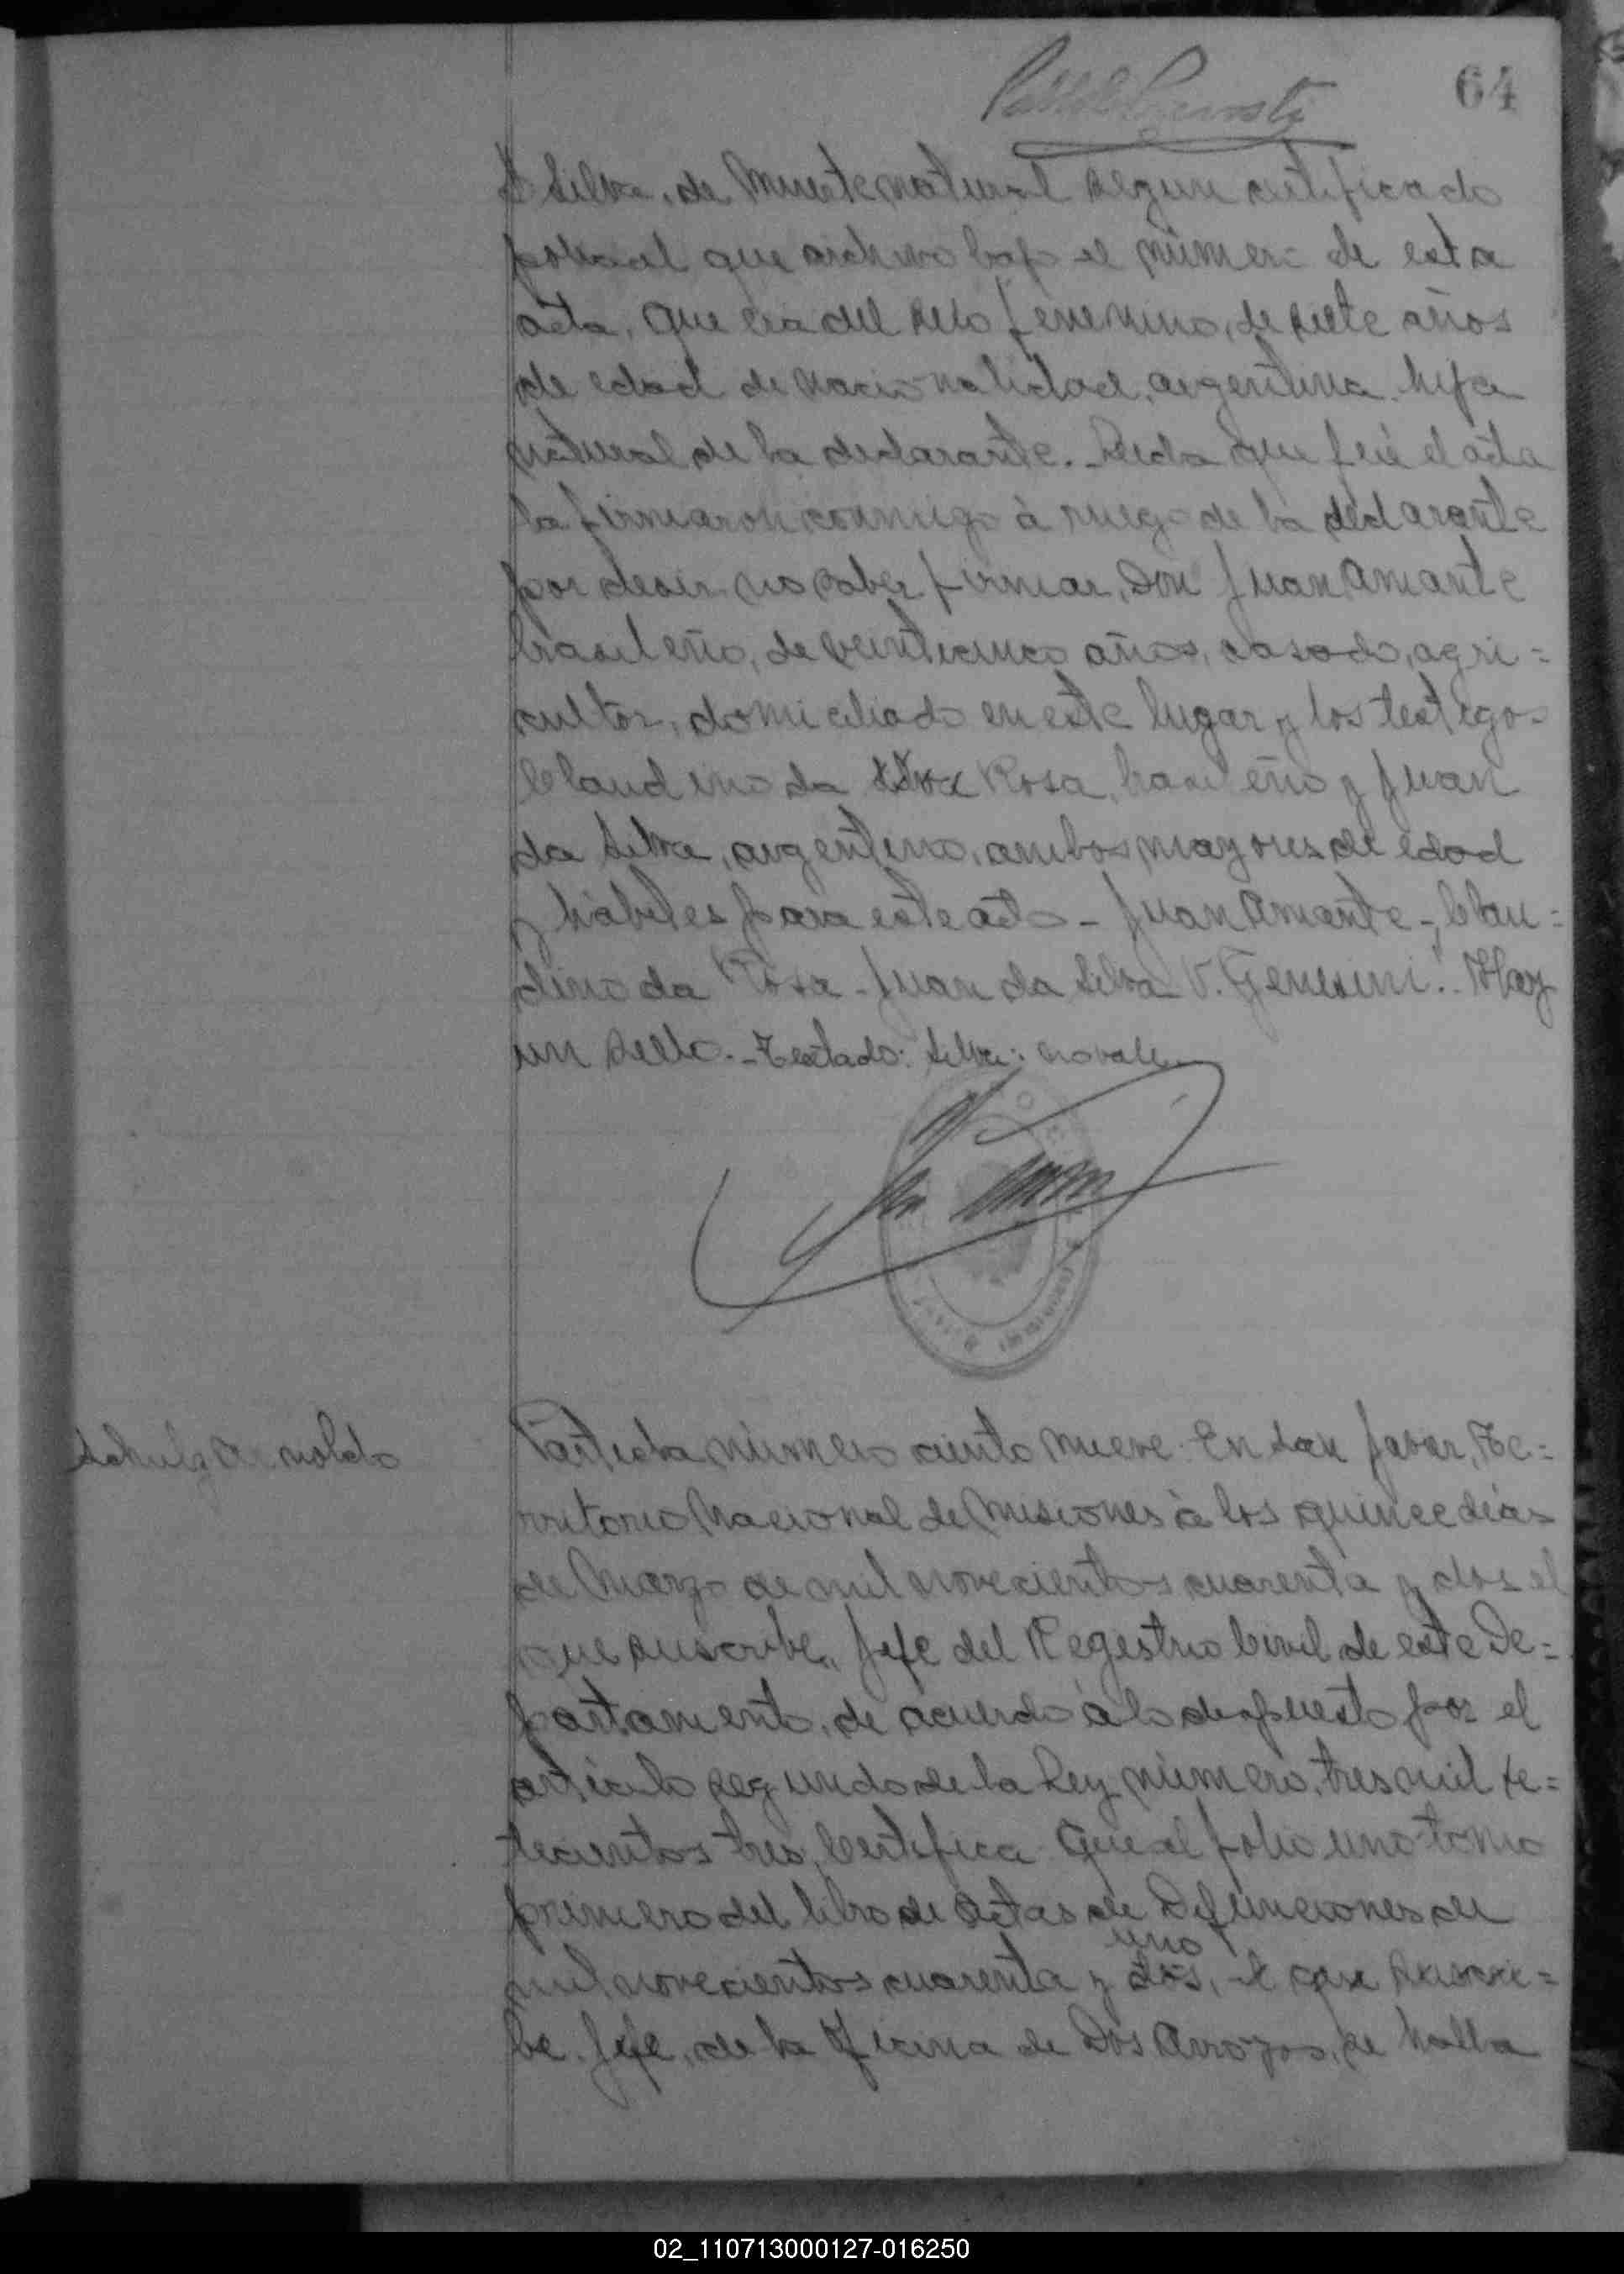 64
Silva, de muerte natural segun certificado
policial que archivo bajo el número de esta
acta, que era del sexo femenino, de siete años
de edad de nacionalidad, argentina, hija
natural de la declarante. - Leida que fué el acta
la firmaron conmigo à ruego de la declarante
por desir no saber firmar, Don Juan Amante
brasileño, de veinticinco años, casado, agri=
cultor, domiciliado en este lugar y los testigos
Claudino da Silva Rosa, brasileño y Juan
da Silva, argentino, ambos mayores de edad
y hábiles para este acto - Juan Amante - Clau=
dino da Rosa - Juan da Silva V. Genesini. - Hay
un sello. - Testado: Silva: no vale
Schulz Arnoldo
Partida número ciento nueve. En San Javier, Te=
rritorio Nacional de Misiones à los quince dias
de Marzo de mil novecientos cuarenta y dos el
que suscribe, Jefe del Registro Civil de este De=
partamento, de acuerdo à lo dispuesto por el
articulo segundo de la Ley número, tres mil se=
tecientos tres, Certifica Que al folio uno tomo
primero del libro de Actas de Defunciones de
uno
mil novecientos cuarenta y dos, el que suscri=
be. Jefe, de la Oficina de Dos Arroyos, se halla
02_110713000127-016250